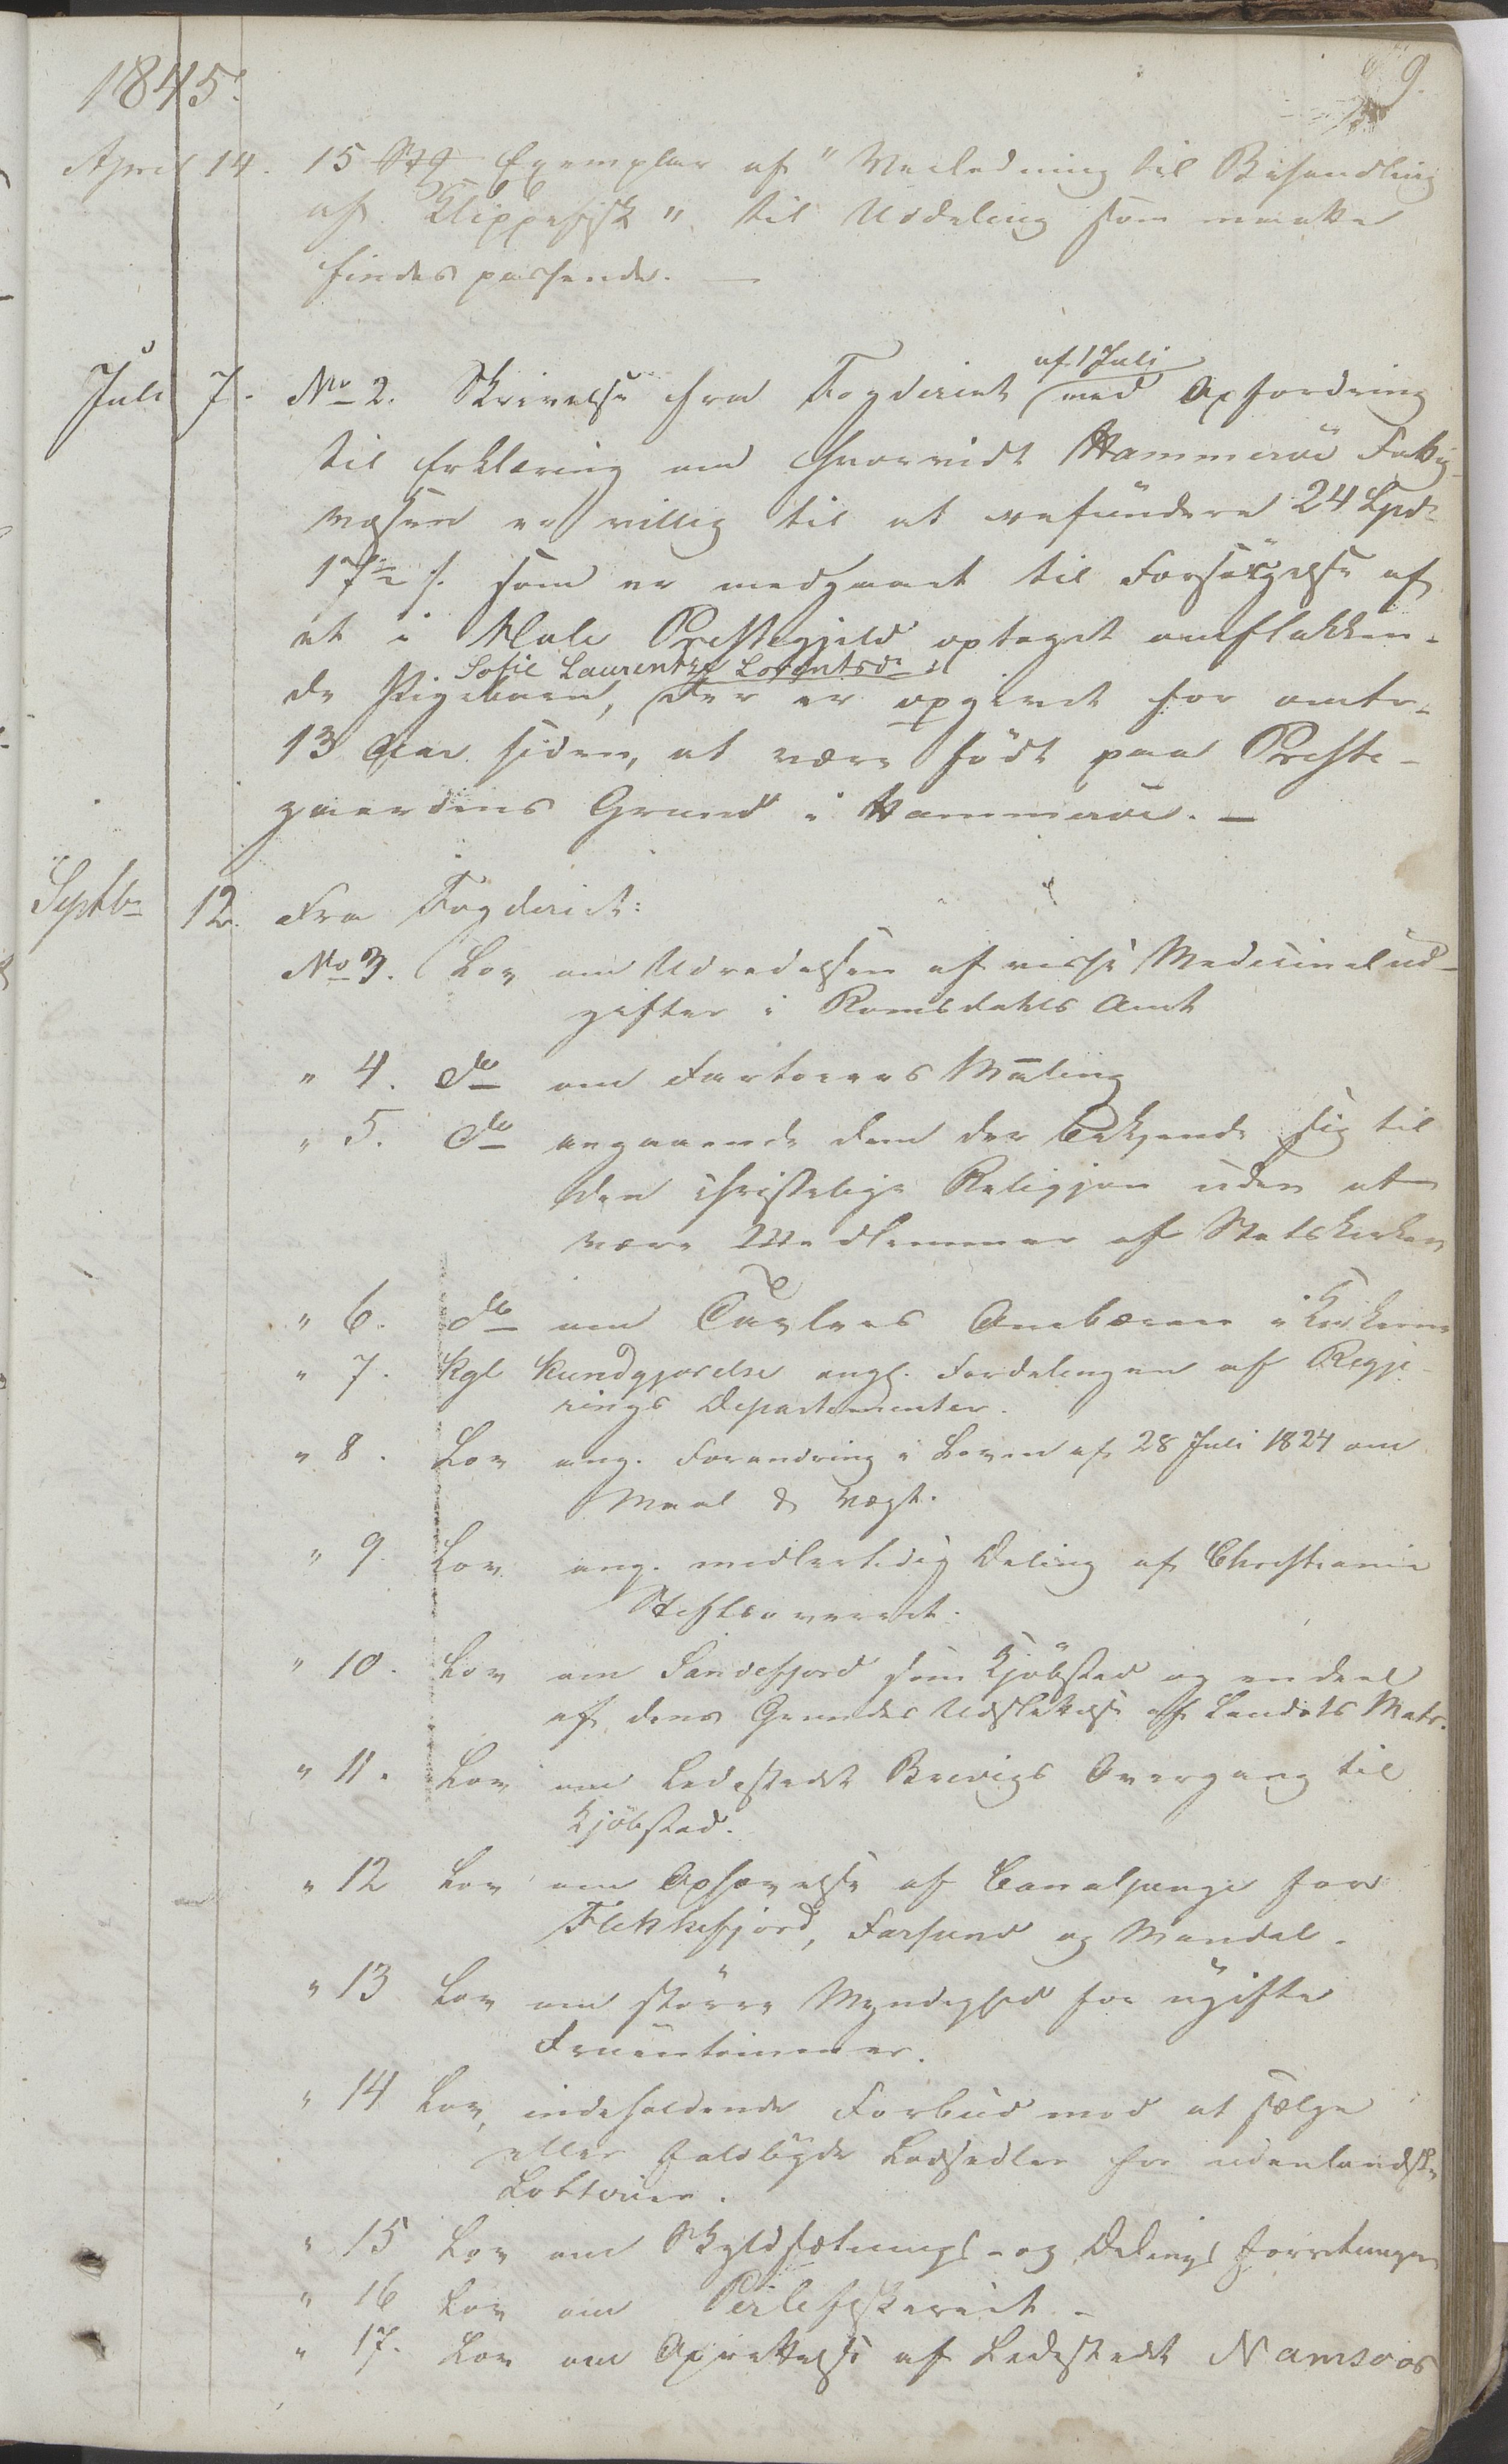 1845.
9.
April 14. 15 Stk Exemplar af "Veiledning til Behandling
af Klippefisk" til Uddeling som maatte
findes passende. —
Juli 7. No 2. Skrivelse fra Fogderiet med Opfordring
af 1 Juli
til Erklæring om hvorvidt Hammerøe Fattig-
væsen er villig til at refundere 24 Spd
17½ s. som er medgaaet til Forsørgelse af
et i Hole Prestegjeld optaget omflakken-
Sofie Laurentze Lorentsd.
de Pigebarn, der er opgivet for omtr.
13 Aar siden, at være født paa Preste-
gaardens Grund i Hammerøe. —
Septbr 12. Fra Fogderiet:
No 3. Lov om Udredelsen af visse Medicinalud-
gifter i Romsdahls Amt
" 4. do om Fartøiers Måling
" 5. do angaaende dem der bekjende sig til
den christelige Religion uden at
være Medlemmer af Statskirken
" 6. do om Tavlers Ombæren i Kirkerne
" 7. Kgl Kundgjørelse angl. Fordelingen af Regje-
rings Departementer.
" 8. Lov ang. Forandring i Loven af 28 Juli 1824 om
Maal & Vægt.
" 9. Lov ang. midlertidig Deling af Christiania
Stiftsoverret.
" 10. Lov om Sandefjord som Kjøbstad og en deel
af dens Grundes Udslettelse af Landets Matr.
" 11. Lov om Ladestedet Brevigs Overgang til
Kjøbstad.
" 12 Lov om Ophævelse af Canalpenge for
Flekkefjord, Farsund og Mandal.
" 13 Lov om større Myndighed for ugifte
Fruentimmer.
" 14 Lov, indeholdende Forbud mod at sælge
eller falbyde Lodsedler for udenlandske
Lotterier.
" 15 Lov om Skyldsætnings- og Delings forretninger
" 16 Lov om Perlefiskeriet –
" 17. Lov om Oprettelse af Ladestedet Namsoos